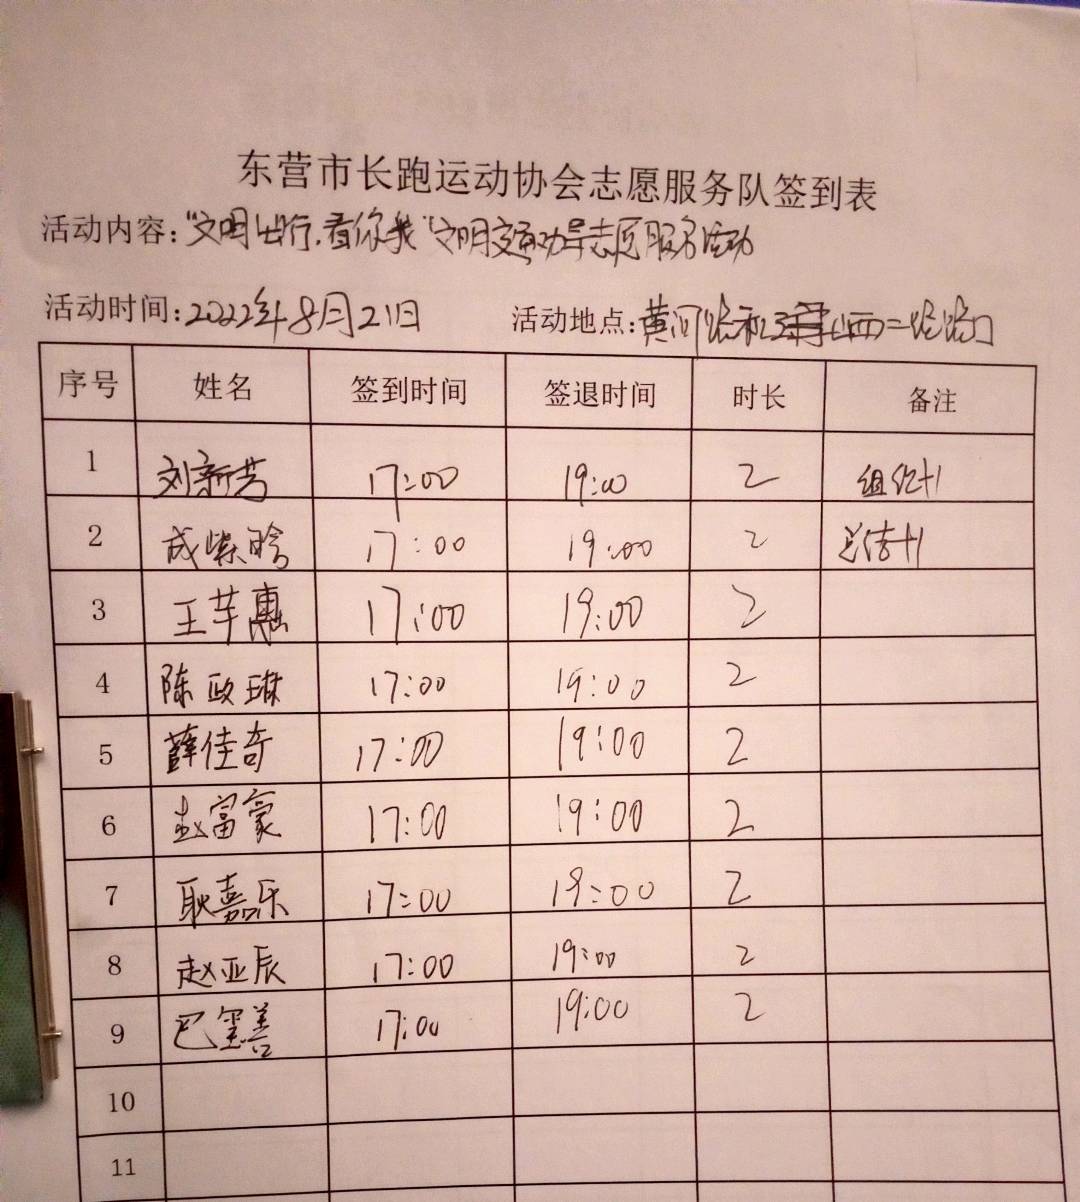 东营市长跑运动协会志愿服务队签到表
活动内容:"文明出行,看你我"文明交通劝导志愿服务活动
活动时间:2022年8月21日 活动地点:黄河路和西二路路口
序号 姓名 签到时间 签退时间 时长 备注
1 刘新芳 17:00 19:00 2 组织+1
2 成柴晗 17:00 19:00 2 总结+1
3 王芊惠 17:00 19:00 2
4 陈政琳 17:00 19:00 2
5 薛佳奇 17:00 19:00 2
6 赵富豪 17:00 19:00 2
7 耿嘉乐 17:00 19:00 2
8 赵亚辰 17:00 19:00 2
9 巴玺善 17:00 19:00 2
10
11